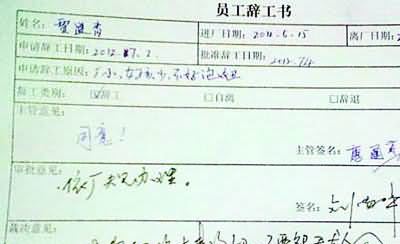 员工辞工书
姓名: 进厂日期: 2011.6.15 离厂日期: 2
申请辞工日期: 2012.7.2. 批准辞工日期: 2012.7.4
申请辞工原因: 厂小,女孩少,不好泡妞
辞工类别: ☑辞工 □自离 □辞退
主管意见:
同意!
主管签名:
审批意见:
依厂规办理。
签名:
裁决意见: